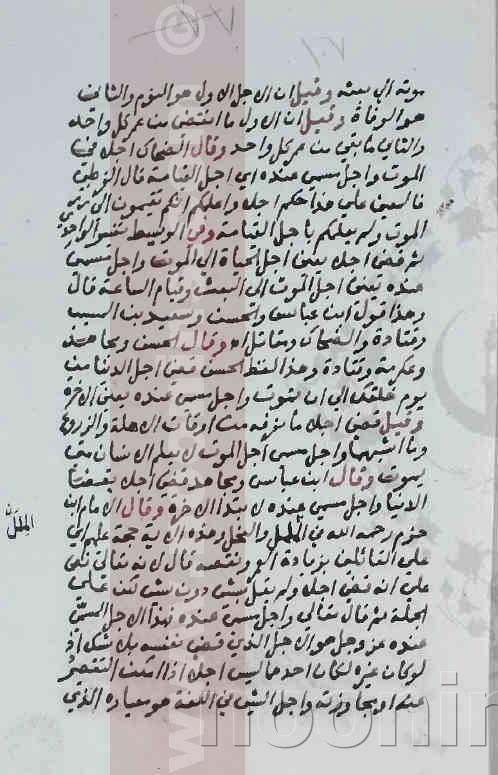 موته الى بعثه وقيل ان الاجل الاول هو النوم والثاني
هو الوفاة وقيل ان الاول ما انقضى من عمر كل واحد
والثاني ما بقي من عمر كل واحد وقال الضحاك اجلا في
الموت واجل مسمى عنده اي اجل القيامة قال القرطبي
فالمعنى على هذا حكم اجلا واعلمكم انكم تقيمون الى
الموت ولم يعلمكم باجل القيامة وفي الوسيط تفسير الواحدي
ثم قضى اجلا يعني اجل الحياة الى الموت واجل مسمى
عنده يعني اجل الموت الى البعث وقيام الساعة قال
وهذا قول ابن عباس والحسن وسعيد بن المسيب
وقتادة والضحاك ومقاتل اه وقال الحسن ومجاهد
وعكرمة وقتادة وهذا لفظ الحسن قضى اجل الدنيا من
يوم خلقك الى ان تموت واجل مسمى عنده يعني الاخرة
وقيل قضى اجلا ما نعرفه من اوقات الاهلة والزروع
وما اشبهها واجل مسمى اجل الموت لا يعلم الانسان متى
يموت وقال ابن عباس ومجاهد قضى اجلا بقضاء
الدنيا واجل مسمى عنده لابتداء الاخرة وقال الامام ابن
حزم رحمه الله في الملل والنحل وهذه الاية حجة
على القائلين بزيادة العمر ونقصه قال لانه تعالى نص
على انه قضى اجلا ولم يقل بشيء دون شيء لكن على
الجملة ثم قال تعالى واجل مسمى عنده فهذا الاجل المسمى
عنده عز وجل هو الاجل الذي قضى نفسه بلا شك اذ
لو كان غيره لكان احدهما ليس اجلا اذا امكن التقصير
عنه او مجاوزته واجل الشيء في اللغة هو ميعاده الذي
الملل
noorin